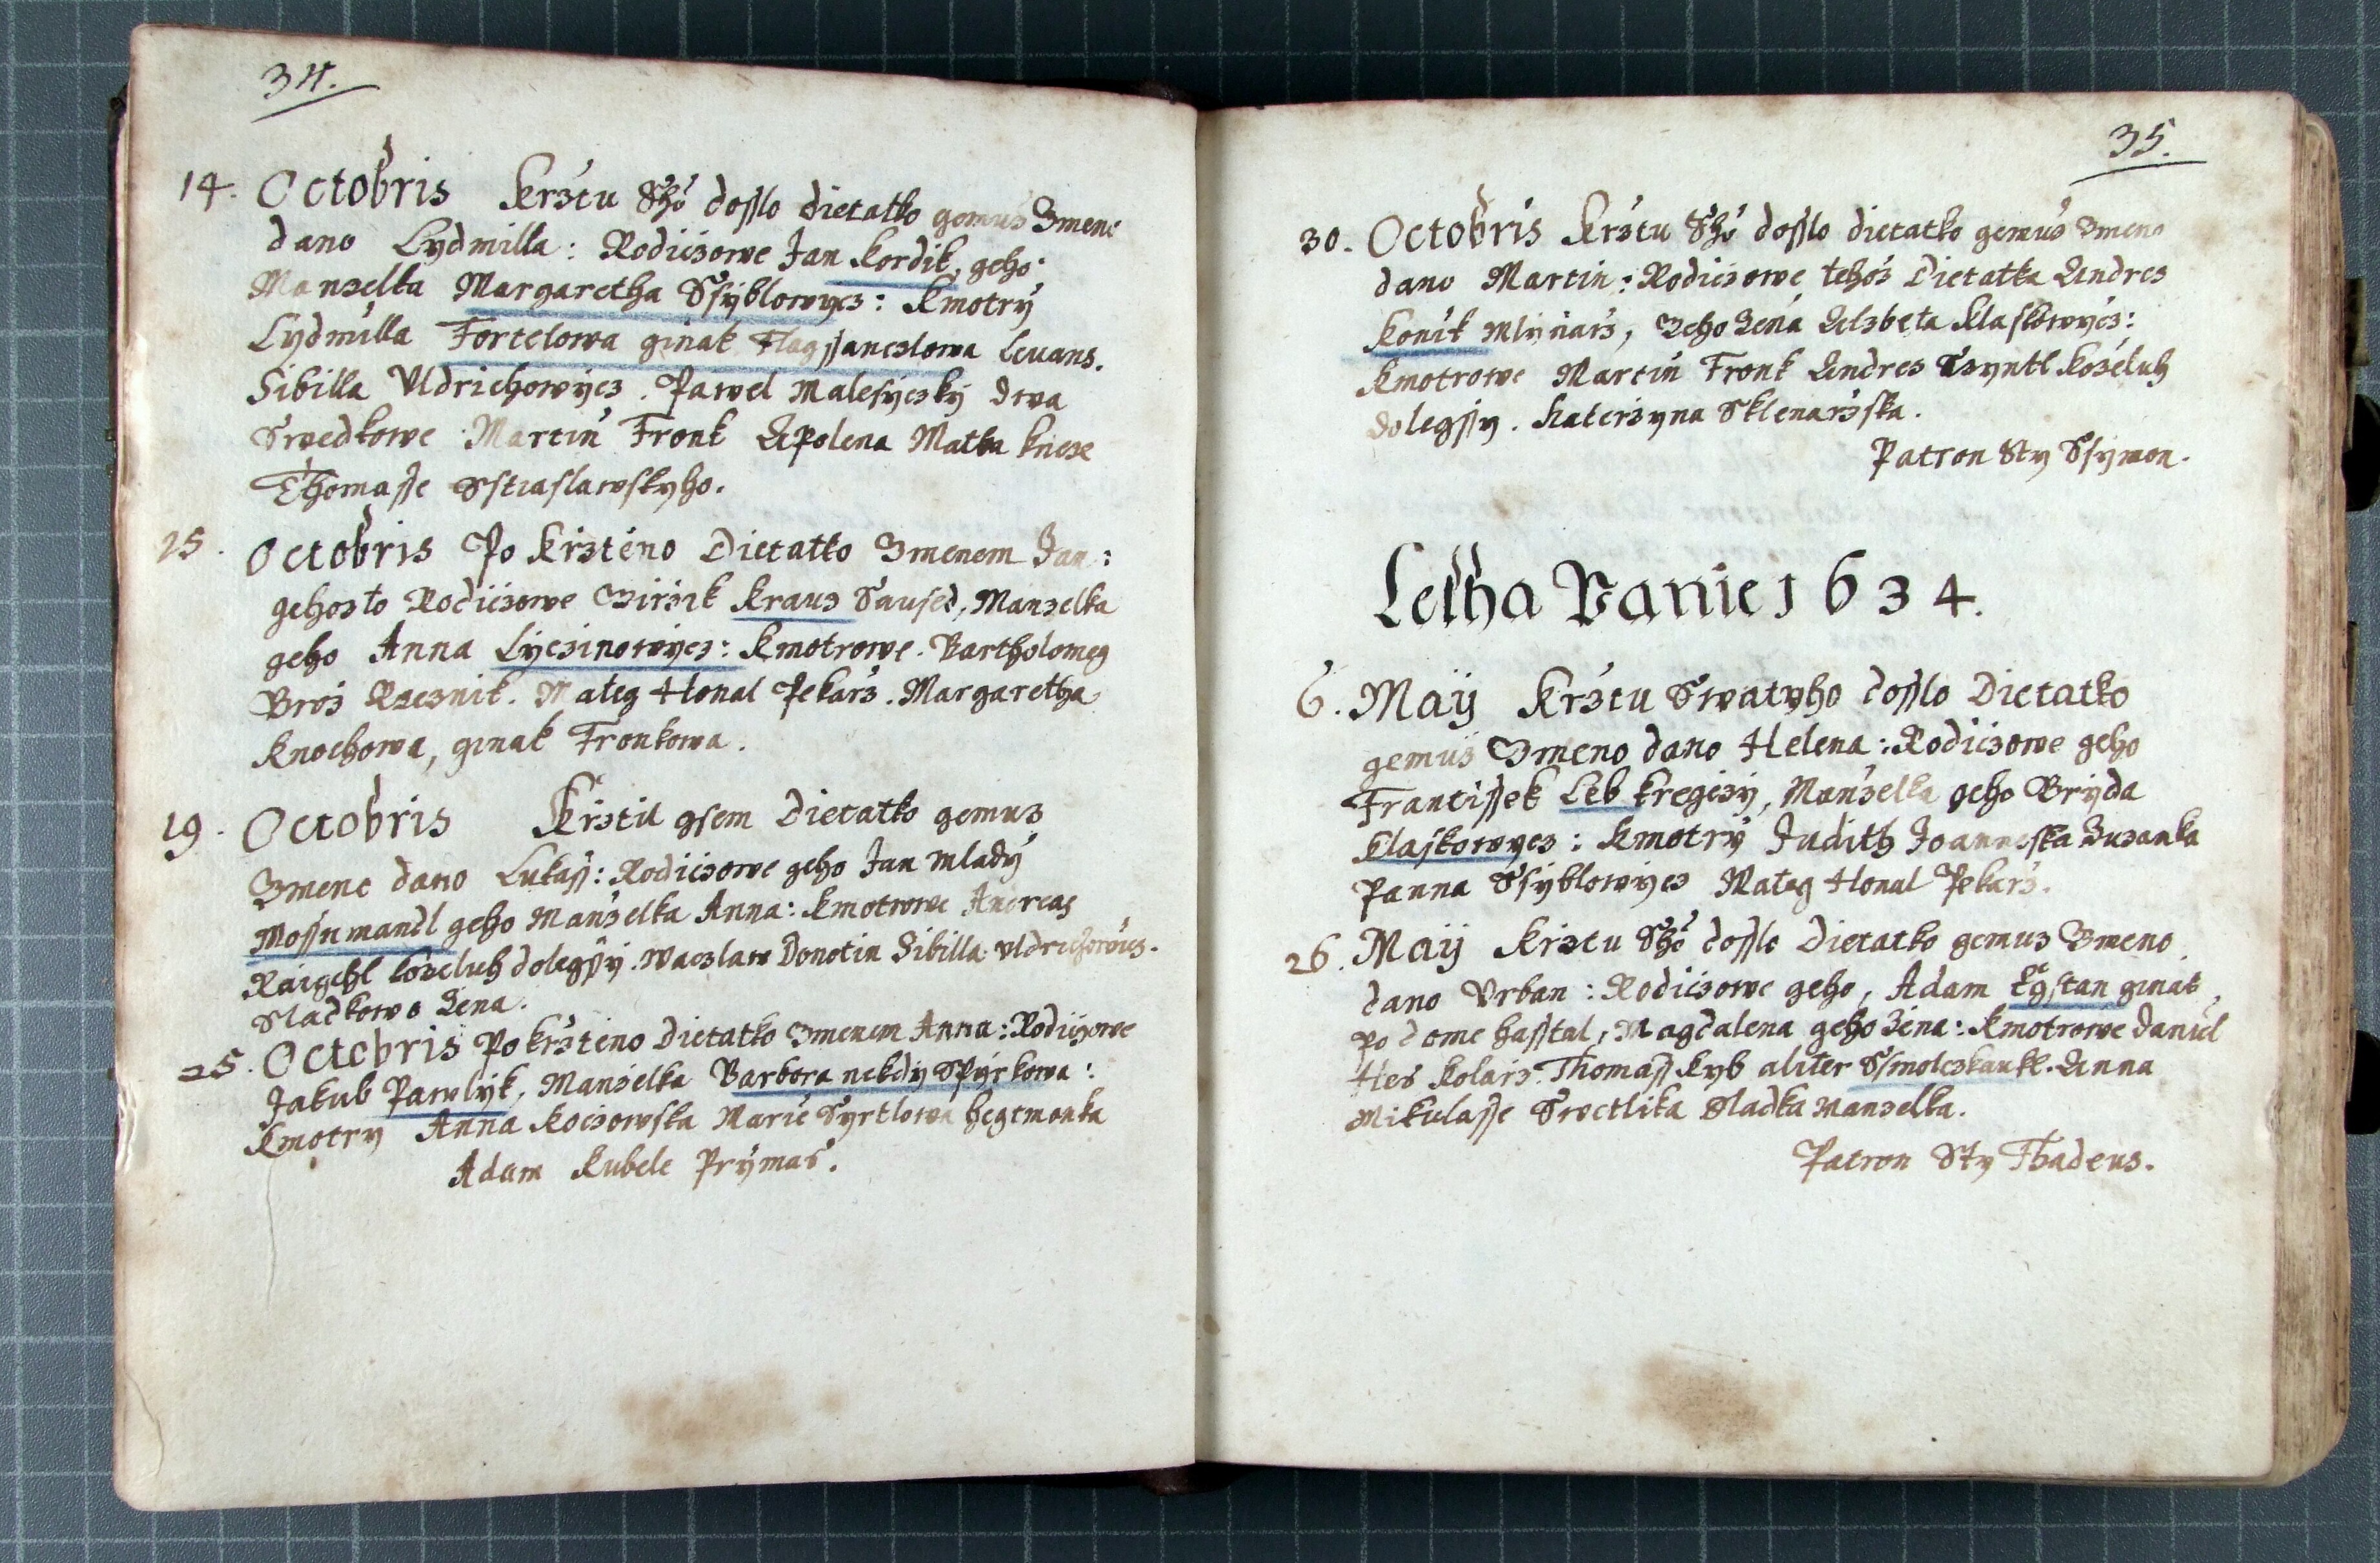 34.
14. Octobris Krztu Sho dosslo dietatko gemuz Zmeno
dano Lydmilla: Rodiczowe Jan Kordik, geho
Manzelka Margaretha Ssyblowycz: Kmotry
Lydmilla Fortelowa ginak Levans.
Sibilla Vldrichowycz. Pawel Malesyczky dwa
Swedkowe Martin Fronk Apolena Matka knieze
Thomasse Sstiaslawskyho.
15. Octobris Po Krzteno Dietatko Zmenem Jan:
gehozto Rodiczowe Girzik Krauz Saused, Manzelka
geho Anna Lyczinowycz: Kmotrowe. Bartholomeg
Broz Rzeznik. Mateg Honal Pekarz. Margaretha
Knochowa, ginak Fronkowa.
19. Octobris Krztil gsem Dietatko gemuz
Zmeno dano Lukass: Rodiczowe geho Jan Mlady
Mossnmandl geho Manzelka Anna: Kmotrowe Andreas
kozeluh dolegssy. Waczlaw Donotin Sibilla Vldrichowicz.
Sladkowa Zena.
25. Octobris Pokrzteno Dietatko Zmenem Anna: Rodiczowe
Jakub Pawlyk, Manzelka Barbora nekdy Spyrkowa:
Kmotry Anna Koczowska Marie Syrtlowa hegtmanka
Adam Kubele Prymas.
35.
30. Octobris Krztu Sho dosslo dietatko gemuz Zmeno
dano Martin: Rodiczowe tehoz Dietatka Andres
Konik Mlynarz, Zeho Zena Alzbeta Klaskowycz:
Kmotrowe Martin Fronk Andres Kozeluh
dolegssy. Katerzyna Sklenarzska.
Patron Sty Ssymon.
Letha Panie 1634.
6. Maÿ Krztu Swatyho dosslo Dietatko
gemuz Zmeno dano Helena: Rodiczowe geho
Frantissek Leb kregczy, Manzelka geho Bryda
Klaskowycz: Kmotry Judith Joanneska Zuzanka
Panna Ssyblowycz Mateg Honal Pekarz.
26. Maÿ Krztu Sho dosslo Dietatko gemuz Zmeno
dano Vrban: Rodiczowe geho, Adam ginak
po dome hasstal, Magdalena geho Zena: Kmotrowe Daniel
Hes Kolarz. Thomass Kyb aliter Anna
Mikulasse Swetlika Sladka Manzelka.
Patron Sty Thadeus.